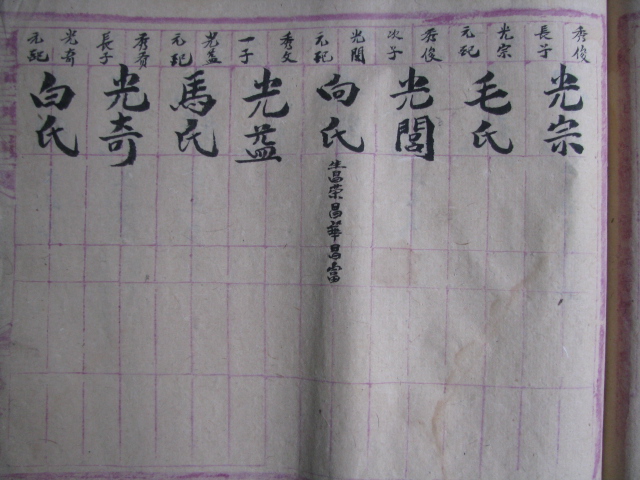 秀俊長子
光宗
光宗元配
毛氏
秀俊次子
光閭
光閭元配
向氏
生昌荣昌華昌富
秀文一子
光蓋
光蓋元配
馬氏
秀 長子
光奇
光奇元配
白氏